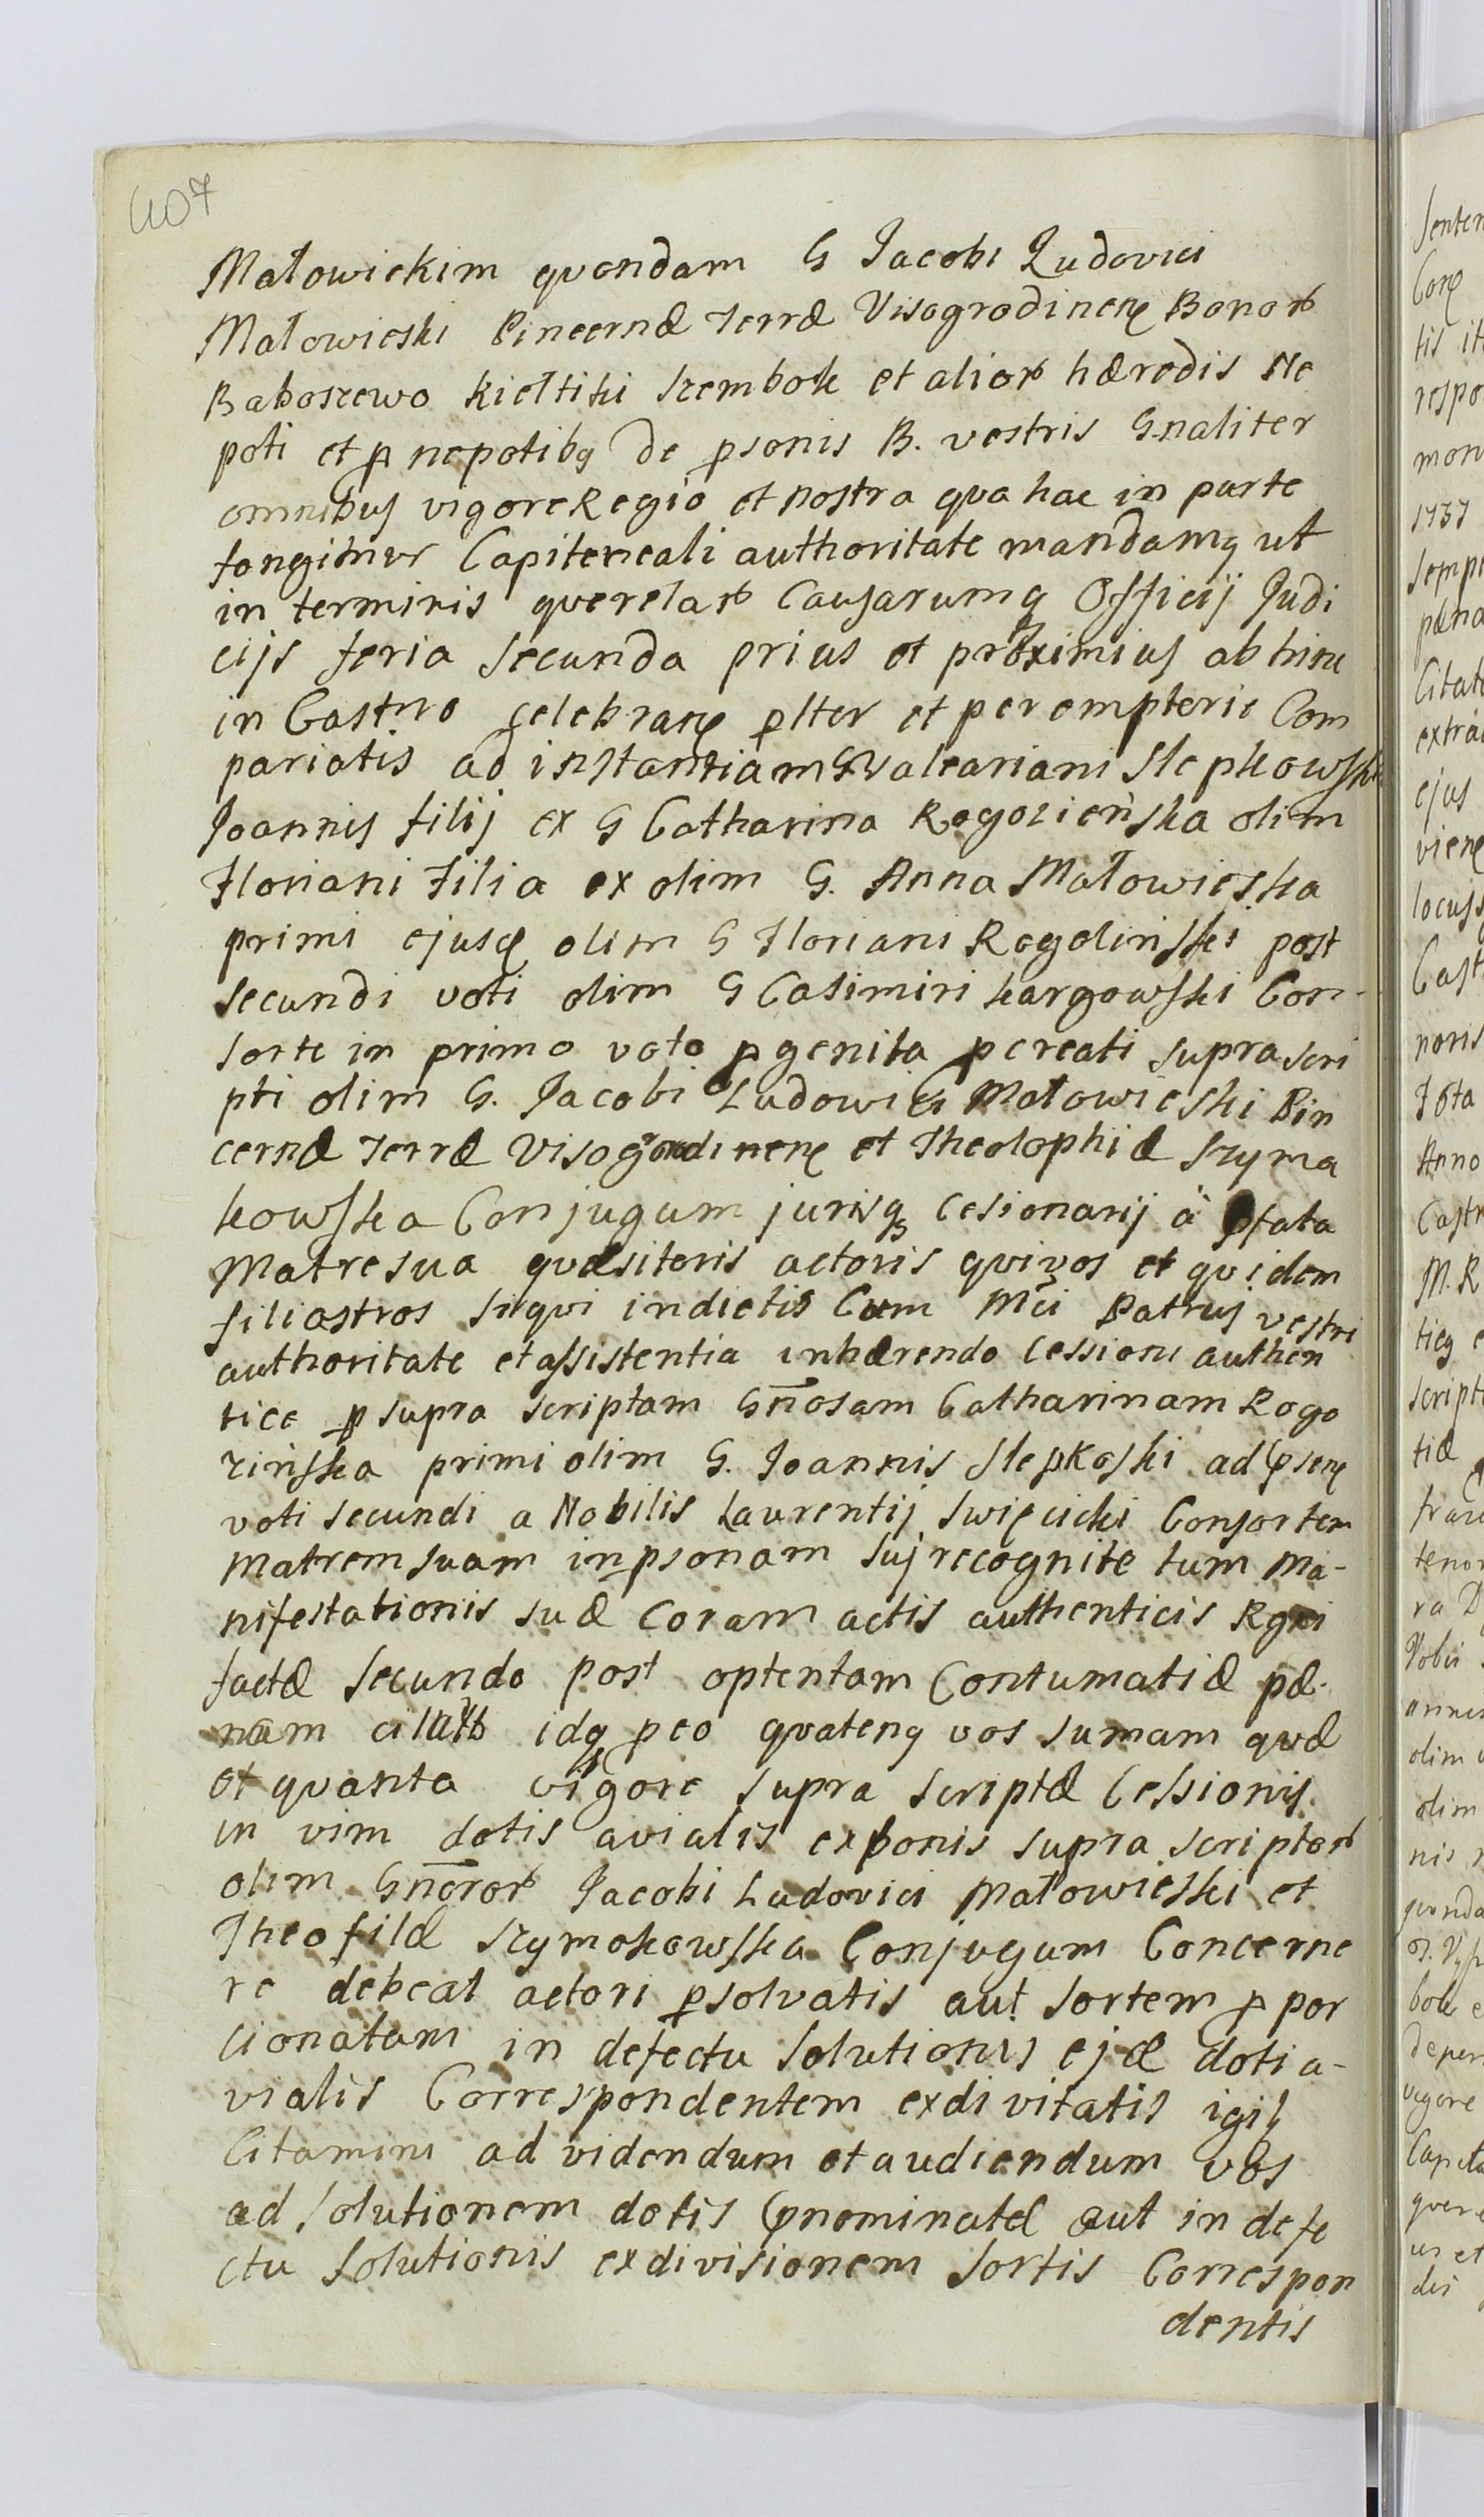 407
Małowiekim quondam G Jacobi Ludovici
Małowieski Pincernæ Terræ Visogrodinenę Bonorꝝ
Baboszewo Kiełtiki Szembok et aliorꝝ hæredis Ne
poti et ꝓ nepotibq de ꝑsonis B. vestris Gnaliter
omnibus vigore Regio et nostra qua hac in parte
fongimur Capiteneali authoritate mandamq ut
in terminis querelarꝝ Causarumq Officij Judi
cijs feria secunda prius et proximius abhinc
in Castro celebranę ꝑlter et peremptorie Com
pariatis ad instantiam G Valeariani Slepkowski
Joannis filij ex G Catharina Rogozieńska olim
Floriani Filia ex olim G. Anna Małowieska
primi ejusę olim G Floriani Rogolinski post
secundi voti olim G Casimiri kargowski Con-
sorte in primo voto ꝓgenita ꝓcreati supra scri
pti olim G. Jacobi Ludowici Małowieski Pin
cernæ Terræ Visogrodinenę et Theolophiæ Szyma
kowska Conjugum jurisqꝫ Cesionarij à ꝑfata
Matre sua quæsitoris actoris quivos et quidem
filiastros siqui indictis Cum Mci Patruj vestri
authoritate et assistentia inhærendo Cessioni authen
tice ꝑ supra scriptam Gn̄osam Catharinam Rogo
zińska primi olim G. Joannis Slepkoski ad ꝑsenę
voti secundi a Nobilis Laurentij Swięcicki Consortem
Matrem suam in ꝑsonam suj recognite tum Ma-
nifestationis suæ Coram actis authenticis Rgni
factæ secundo post optentam Contumatiæ pæ-
nam idq ꝑeo quatenq vos sumam quæ
et quanta vigore supra scriptæ Cessionis
in vim dotis avialis exbonis supra scriptorꝝ
olim Gn̄ororꝝ Jacobi Ludovici Małowieski et
Theofilæ Szymokowska Conjugum Concerne
re debeat actori ꝑsolvatis aut sortem ꝓpor
cionatam in defectu Solutionis ejæ doti a-
vialis Correspondentem exdivitatis igiꝉ
Citamini ad videndum et audiendum vos
ad solutionem dotis ꝑnominatæ aut in defe
ctu solutionis exdivisionem sortis Correspon
dentis